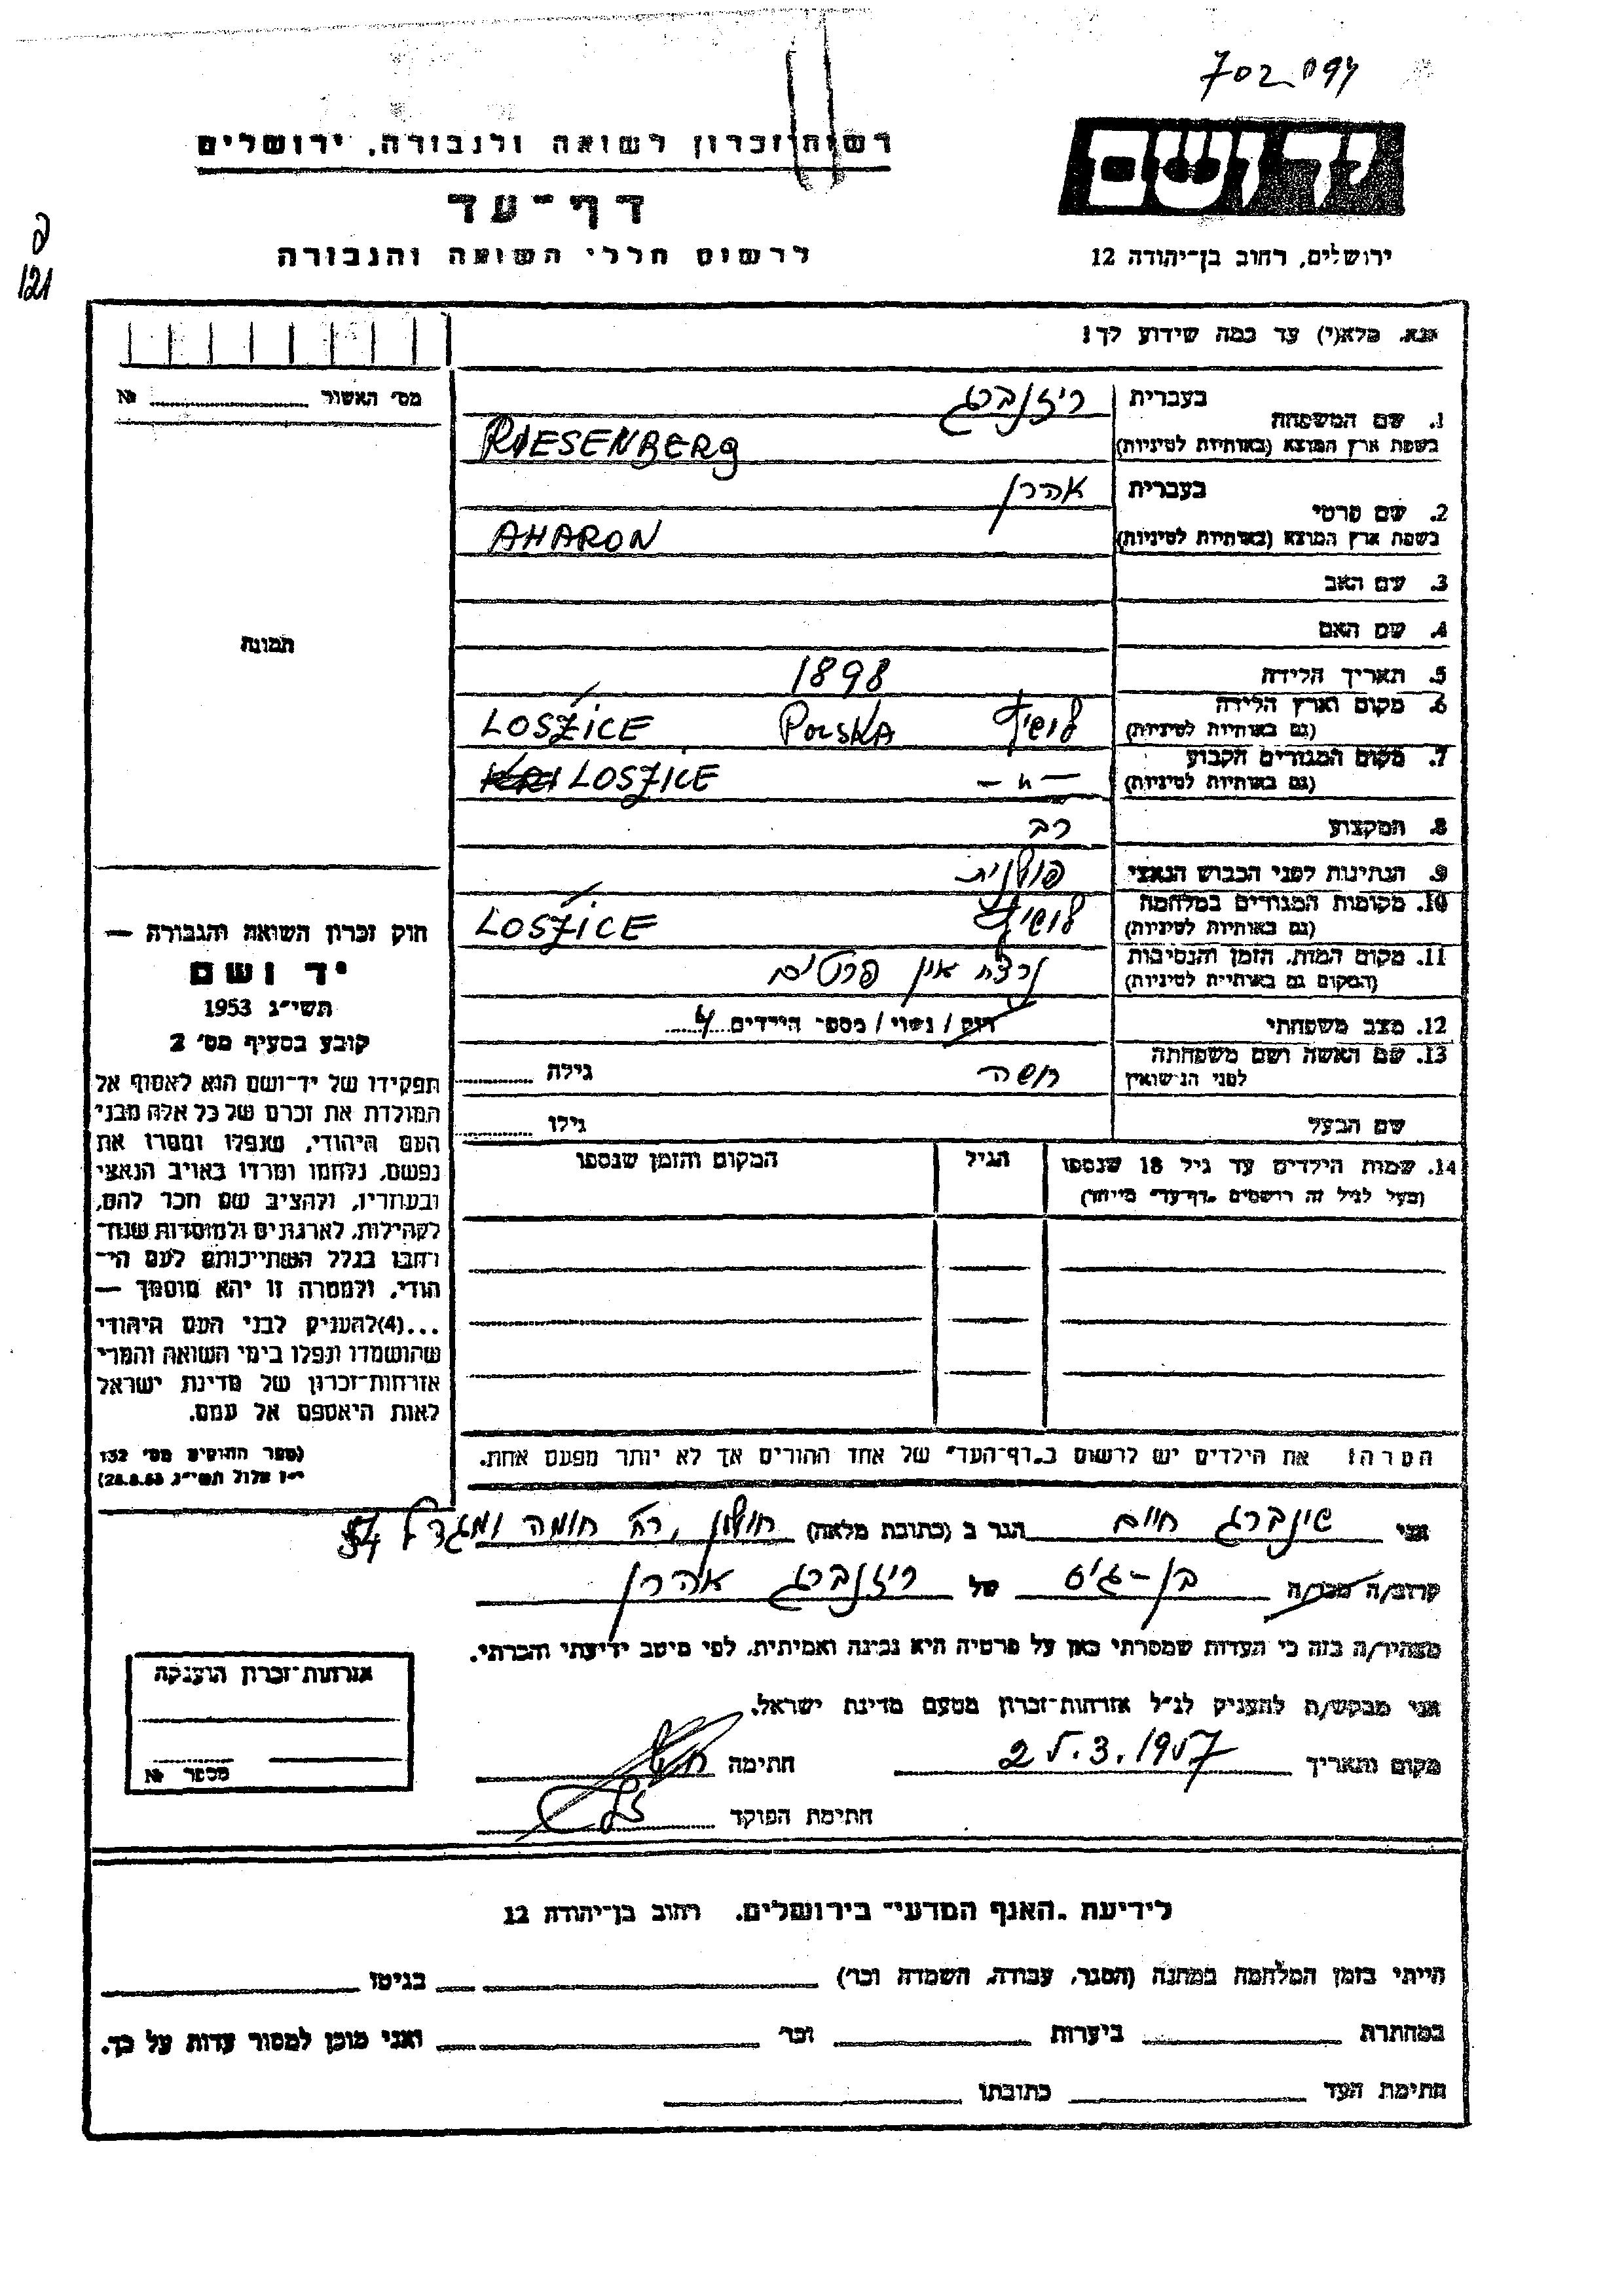 702094
יד ושם
רשות זכרון לשואה ולגבורה, ירושלים
דף־עד
לרשום חללי השואה והגבורה
ירושלים, רחוב בן־יהודה 12
121
נא, מלא(י) עד כמה שידוע לך!
מס׳ האשור № 
1. שם המשפחה
בעברית ריזנברג
בשפת ארץ המוצא (באותיות לטיניות) RIESENBERG
2. שם פרטי
בעברית אהרן
בשפת ארץ המוצא (באותיות לטיניות) AHARON
3. שם האב
4. שם האם
תמונה
5. תאריך הלידה 1898
6. מקום וארץ הלידה
(גם באותיות לטיניות) לושיץ POLSKA LOSZICE
7. מקום המגורים הקבוע
(גם באותיות לטיניות) — " — LOSZICE
8. המקצוע רב
9. הנתינות לפני הכבוש הנאצי פולנית
10. מקומות המגורים במלחמה
(גם באותיות לטיניות) לושיץ LOSZICE
11. מקום המות, הזמן והנסיבות
(המקום גם באותיות לטיניות) נרצח אין פרטים
12. מצב משפחתי רווק / נשוי / מספר הילדים 4
13. שם האשה ושם משפחתה
לפני הנשואין גילה
שם הבעל גילו
14. שמות הילדים עד גיל 18 שנספו
(מעל לגיל זה רושמים "דף־עד" מיוחד)
הגיל
המקום והזמן שנספו
הערה: את הילדים יש לרשום ב"דף־העד" של אחד ההורים אך לא יותר מפעם אחת.
חוק זכרון השואה והגבורה —
יד ושם
תשי״ג 1953
קובע בסעיף מס׳ 2
תפקידו של יד־ושם הוא לאסוף אל
המולדת את זכרם של כל אלה מבני
העם היהודי, שנפלו ומסרו את
נפשם, נלחמו ומרדו באויב הנאצי
ובעוזריו, ולהציב שם וזכר להם,
לקהילות, לארגונים ולמוסדות שנח־
רבו בגלל השתייכותם לעם הי־
הודי, ולמטרה זו יהא מוסמך —
...(4)להעניק לבני העם היהודי
שהושמדו ונפלו בימי השואה והמרי
אזרחות־זכרון של מדינת ישראל
לאות היאספם אל עמם.
(ספר החוקים מס׳ 132
י״ז אלול תשי״ג 28.8.53)
אני שינברג חיים הגר ב (כתובת מלאה) חולון, רח׳ חומה ומגדל 54
קרוב/ה מכר/ה בן-גיס של ריזנברג אהרן
מצהיר/ה בזה כי העדות שמסרתי כאן על פרטיה היא נכונה ואמיתית, לפי מיטב ידיעתי והכרתי.
אני מבקש/ת להעניק לנ״ל אזרחות־זכרון מטעם מדינת ישראל.
מקום ותאריך 25.3.1957 חתימה
חתימת הפוקד
אזרחות־זכרון הוענקה
מספר №
לידיעת "האגף המדעי" בירושלים, רחוב בן־יהודה 12
הייתי בזמן המלחמה במחנה (הסגר, עבודה, השמדה וכו׳) בגיטו
במחתרת ביערות וכו׳ ואני מוכן למסור עדות על כך.
חתימת העד כתובתו